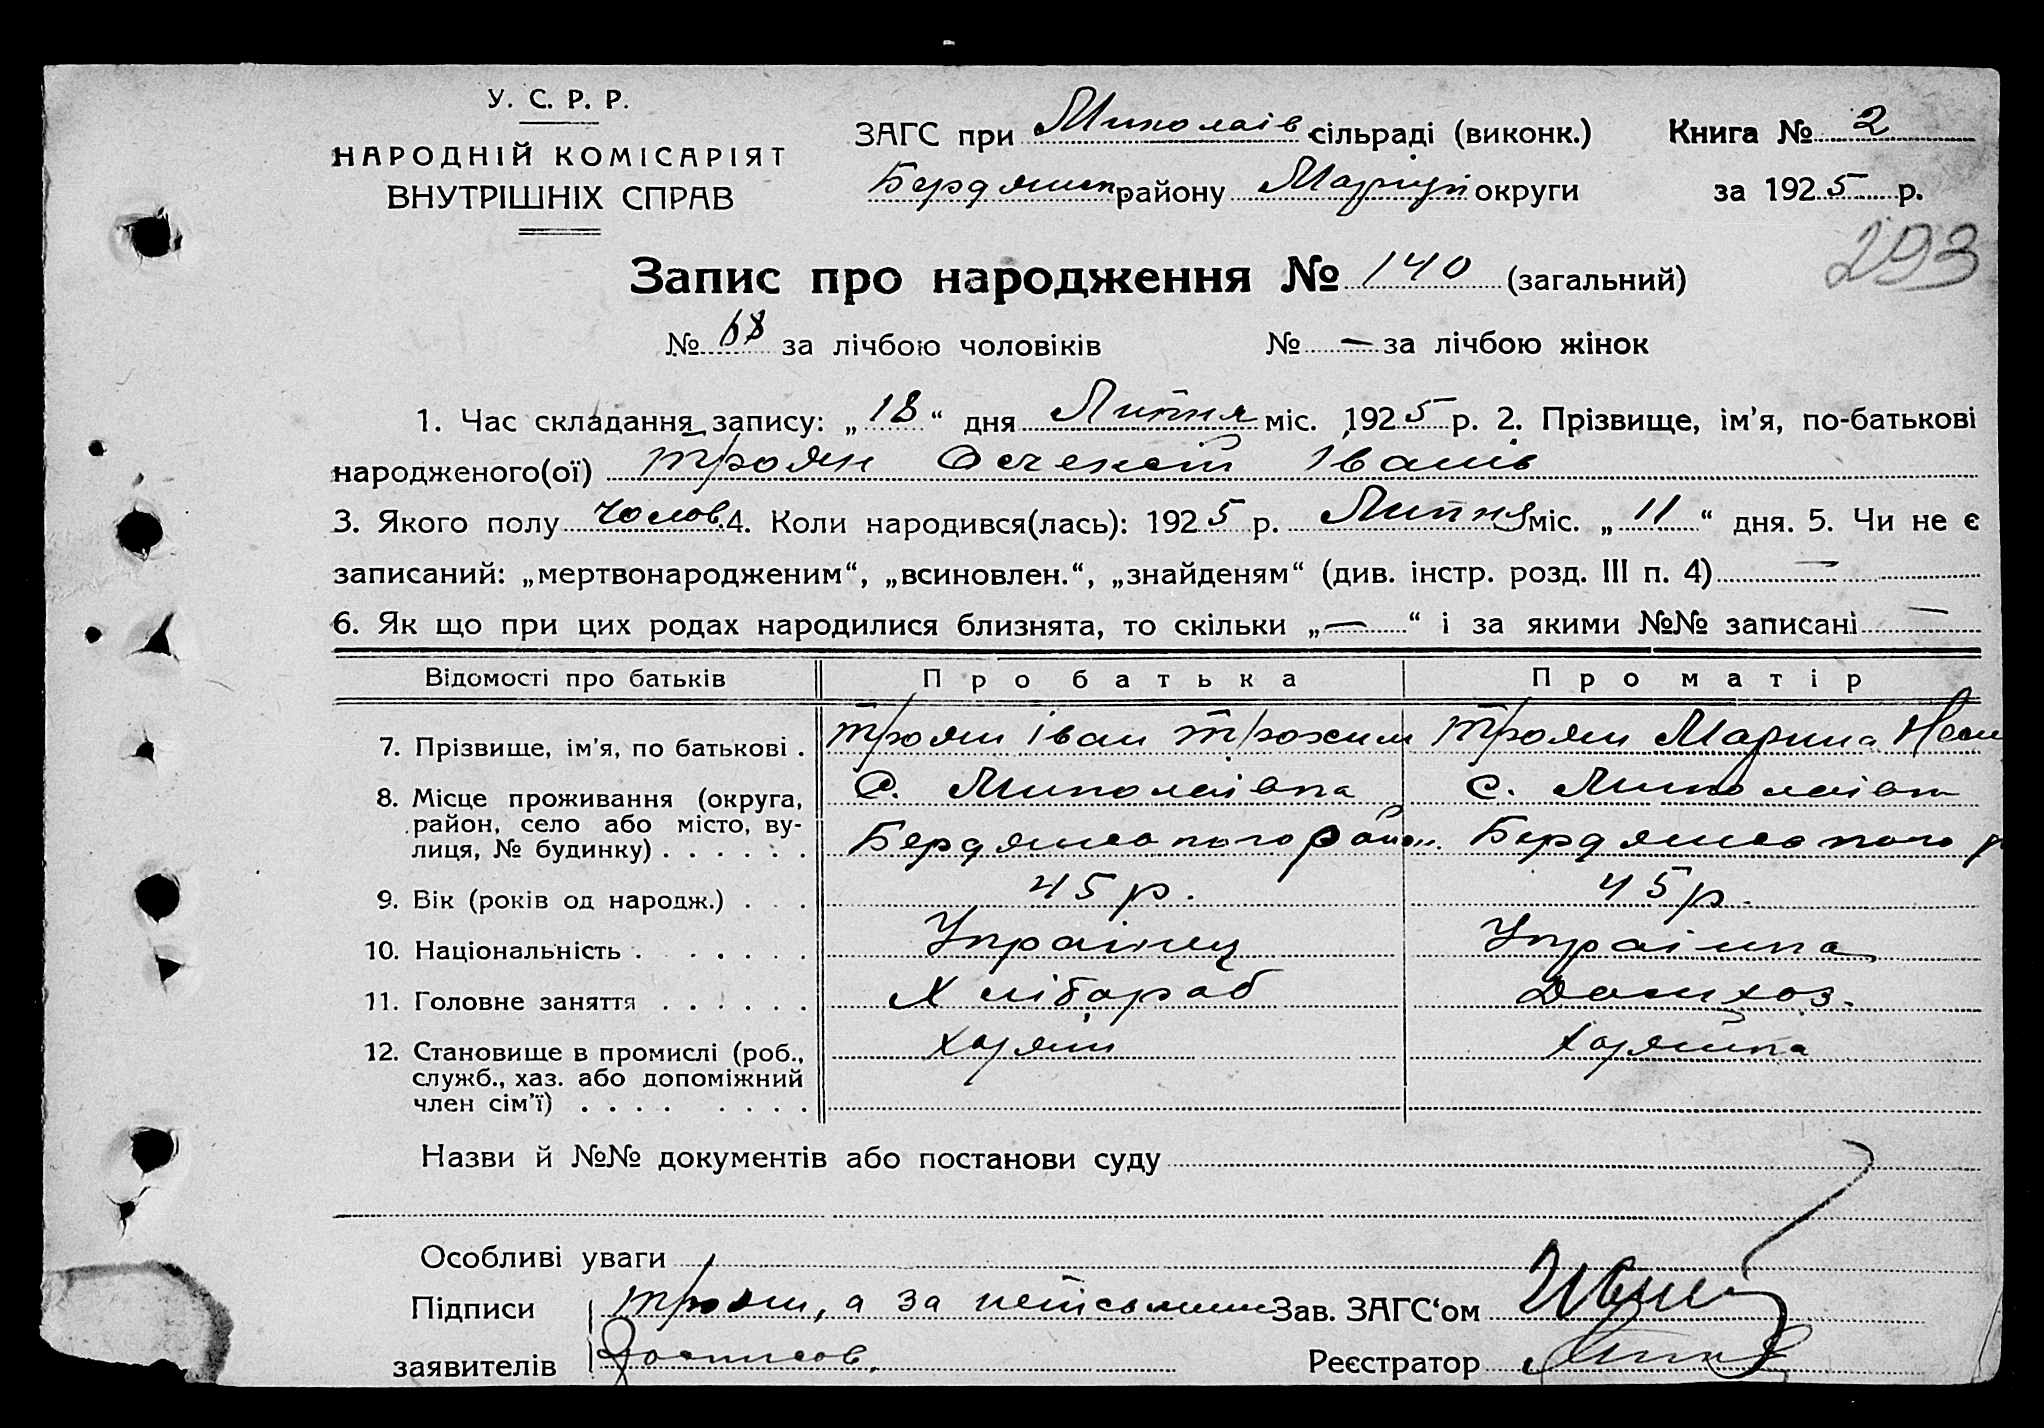 У. С. Р. Р.
НАРОДНІЙ КОМІСАРІЯТ
ВНУТРІШНІХ СПРАВ
ЗАГС при Миколаїв сільраді (виконк.) Книга № 2
Бердянськ району Маріуп округи за 1925 р.
293
Запис про народження № 140 (загальний)
№ 68 за лічбою чоловіків № — за лічбою жінок
1. Час складання запису: „18“ дня Липня міс. 1925 р. 2. Прізвище, ім’я, по-батькові
народженого(ої) Троян Іванів
3. Якого полу чолов. 4. Коли народився(лась): 1925 р. Липня міс. „11“ дня. 5. Чи не є
записаний: „мертвонародженим“, „всиновлен.“, „знайденям“ (див. інстр. розд. III п. 4) —
6. Як що при цих родах народилися близнята, то скільки „—“ і за якими №№ записані —
Відомості про батьків Про батька Про матір
7. Прізвище, ім’я, по батькові . Троян Іван Трохим Троян Марина
8. Місце проживання (округа, С. Миколаівка С. Миколаівк
район, село або місто, ву-
лиця, № будинку) . . . . . . Бердянського район. Бердянського р
9. Вік (років од народж.) . . . 45 р. 45 р.
10. Національність . . . . . . Українец Українка
11. Головне заняття . . . . . . Хлібороб Домхоз.
12. Становище в промислі (роб., Хазяин Хазяйка
служб., хаз. або допоміжний
член сім’ї) . . . . . . . .
Назви й №№ документів або постанови суду
Особливі уваги
Підписи Троян, а за Зав. ЗАГС‘ом
заявителів Реєстратор